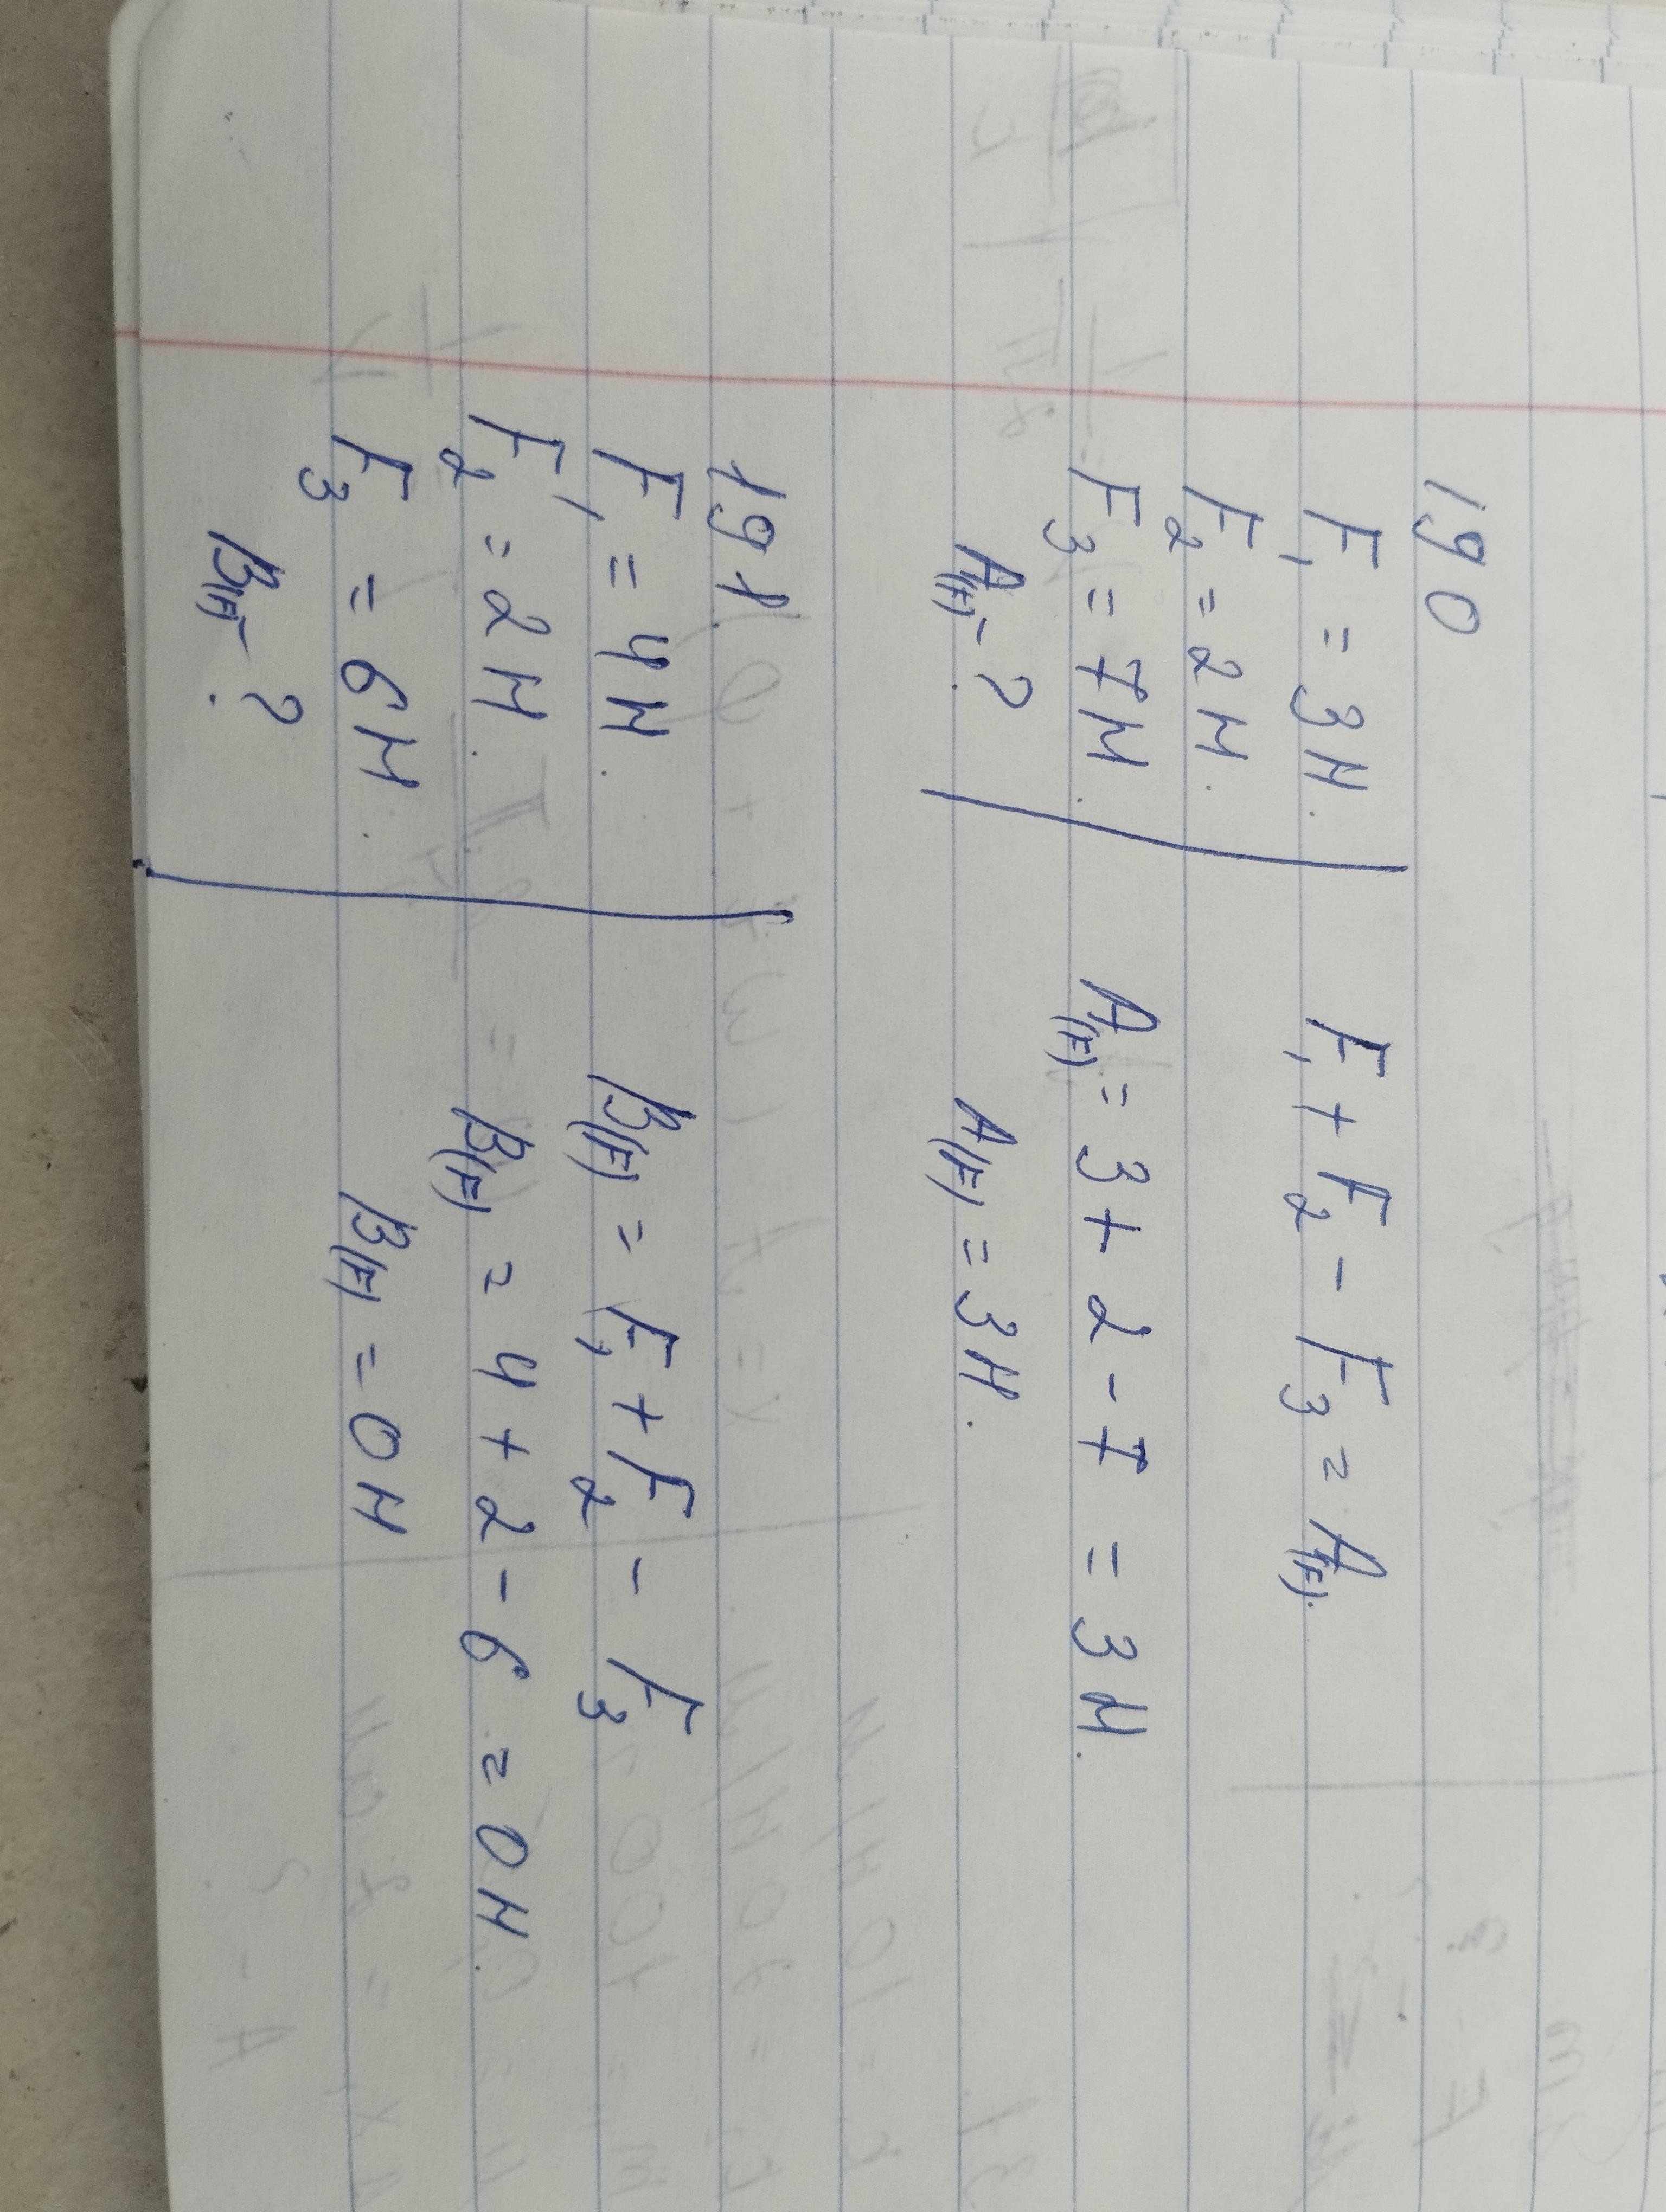 190
F₁ = 3H.
F₂ = 2H.
F₃ = 7H.
A(F) - ?
F₁ + F₂ - F₃ = A(F).
A(F) = 3 + 2 - 7 = 3H.
A(F) = 3H.
191.
F₁ = 4H.
F₂ = 2H.
F₃ = 6H.
B(F) - ?
B(F) = F₁ + F₂ - F₃
B(F) = 4 + 2 - 6 = 0H.
B(F) = 0H